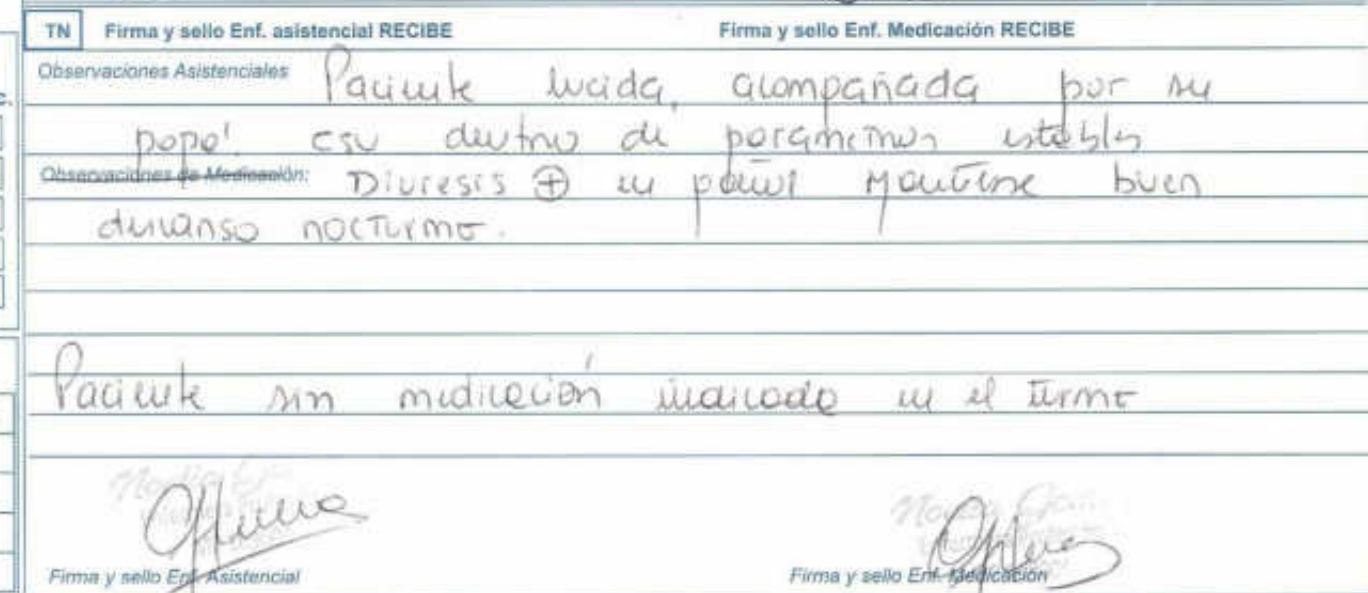 TN Firma y sello Enf. asistencial RECIBE Firma y sello Enf. Medicación RECIBE
Observaciones Asistenciales Paciente lucida, acompañada por su
papá. csv dentro de parametros estables
Observaciones de Medicación: Diuresis ⊕ en pañal Mantiene buen
descanso nocturno.
Paciente sin medicación indicada en el turno
Firma y sello Enf. Asistencial Firma y sello Enf. Medicación